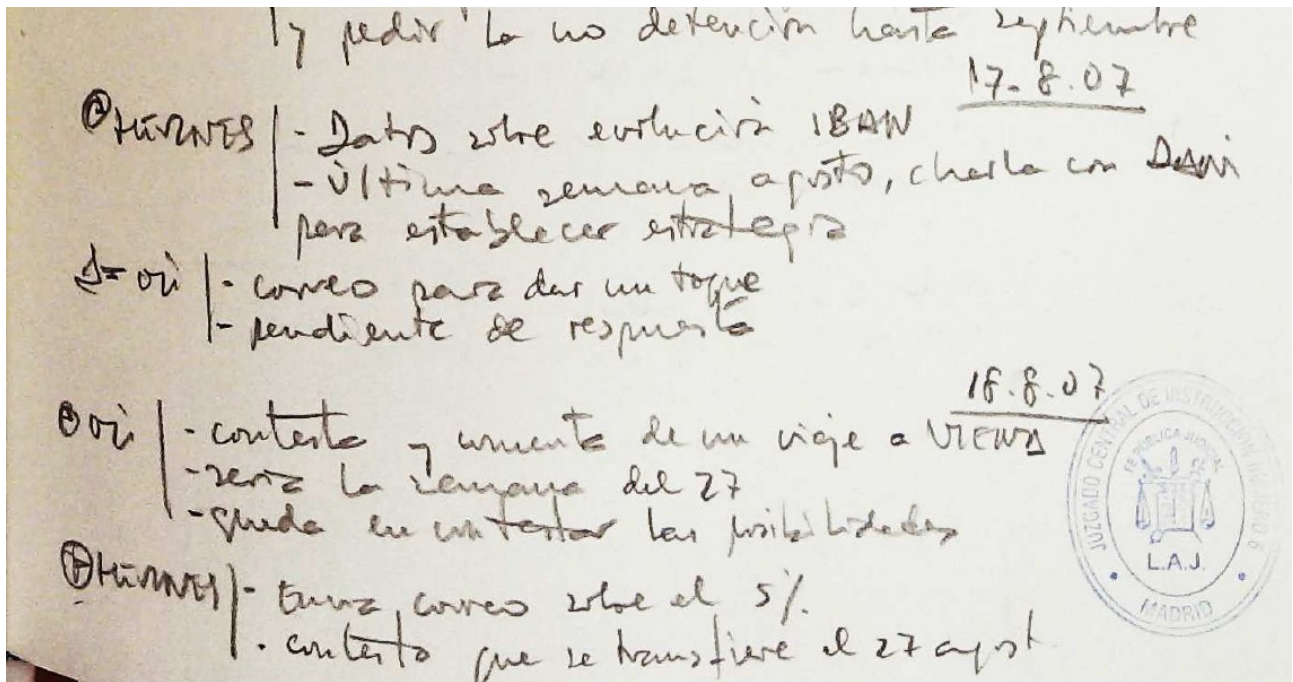 y pedir la no detención hasta septiembre
17.8.07
- Datos sobre evolución IBAN
- Última semana agosto, charla con DANI
para establecer estrategia
- correo para dar un toque
- pendiente de respuesta
18.8.07
- contesta y comenta de un viaje a VIENA
- sería la semana del 27
- queda en contestar las posibilidades
- envía correo sobre el 5%.
- contesto que se transfiere el 27 agost
JUZGADO CENTRAL DE INSTRUCCIÓN NÚMERO 6
FE PÚBLICA JUDICIAL
L.A.J.
MADRID